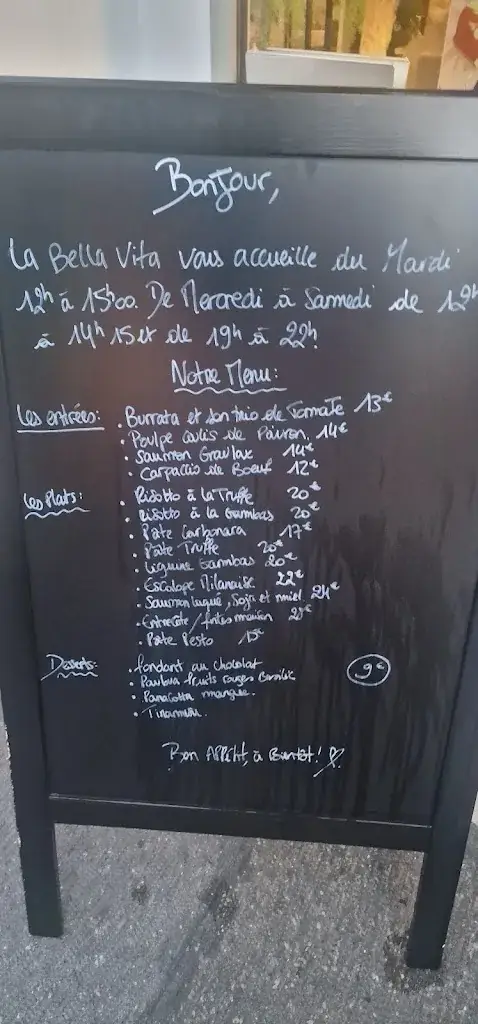 Bonjour,
La Bella Vita vous accueille du Mardi
12h à 15h00. De Mercredi à Samedi de 12h
à 14h15 et de 19h à 22h.
Notre Menu:
Les entrées: . Burrata et son trio de Tomate 13€
. Poulpe coulis de Poivron. 14€
. Saumon Gravlax 14€
. Carpaccio de Boeuf 12€
Les Plats: . Risotto à la Truffe 20€
. Risotto à la Gambas 20€
. Pâte Carbonara 17€
. Pâte Truffe 20€
. Liguine Gambas 20€
. Escalope Milanaise 22€
. Saumon laqué, Soja et miel. 24€
. Entrecôte / frites maison
. Pâte Pesto 15€
Desserts: . fondant au chocolat 9€
. Pavlova fruits rouges Basilic
. Panacotta mangue.
. Tiramisu.
Bon Appétit, à Bientôt!